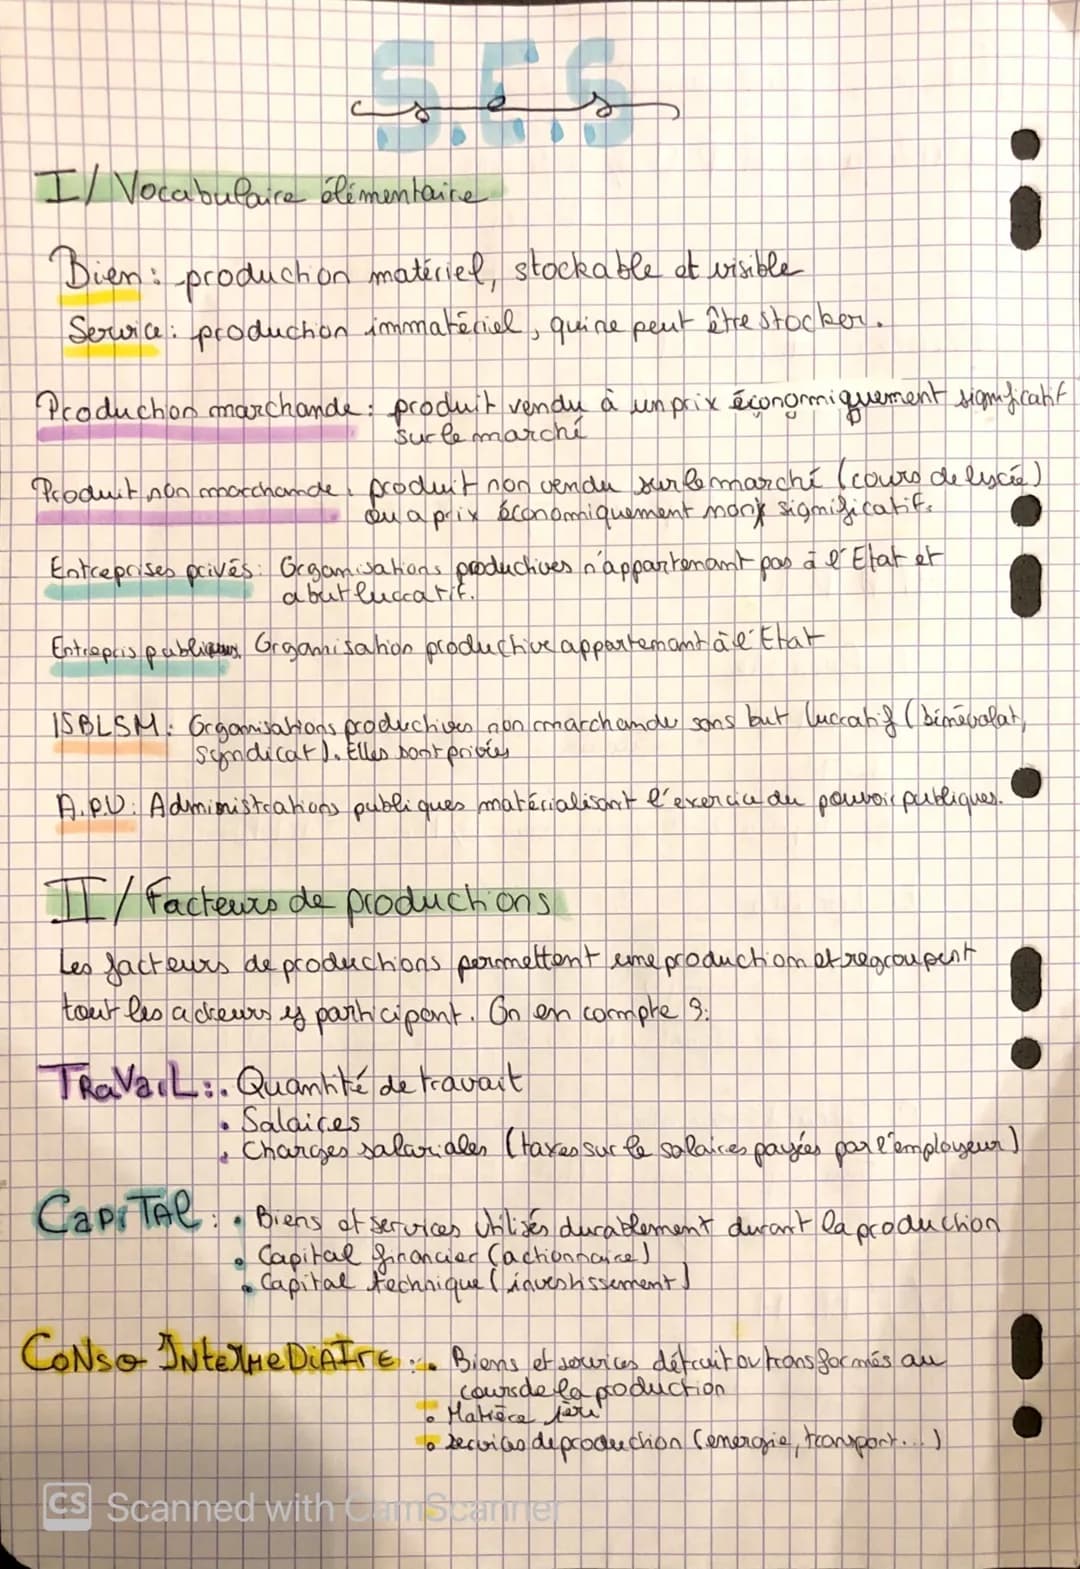 S.E.S
s e s
I/ Vocabulaire élémentaire
Bien : production matériel, stockable et visible
Service : production immatériel, qui ne peut être stocker.
Production marchande : produit vendu à un prix économiquement significatif
sur le marché
Produit non marchande : produit non vendu sur le marché (cours de lycée)
ou a prix économiquement non significatif.
Entreprises privés : Organisations productives n'appartenant pas à l'Etat et
a but luccratif.
Entrepris publiques Organisation productive appartenant à l'Etat
ISBLSM : Organisations productives non marchande sans but luccratif (bénévolat,
syndicat). Elles sont privés
A.P.U : Administrations publiques matérialisant l'exercice du pouvoir publiques.
II/ Facteurs de productions
Les facteurs de productions permettent une production et regroupent
tout les acteurs y participent. On en compte 3:
TRaVaiL : • Quantité de travail
• Salaires
• Charges salariales (taxes sur le salaires payés par l'employeur)
CaPiTAl : • Biens et services utilisés durablement durant la production
• Capital financier (actionnaire)
• Capital technique (investissement)
CoNso INteRMeDiAIrE : • Biens et services détruit ou transformés au
cours de la production
• Matière 1ère
• services de production (energie, transport...)
CS Scanned with CamScanner